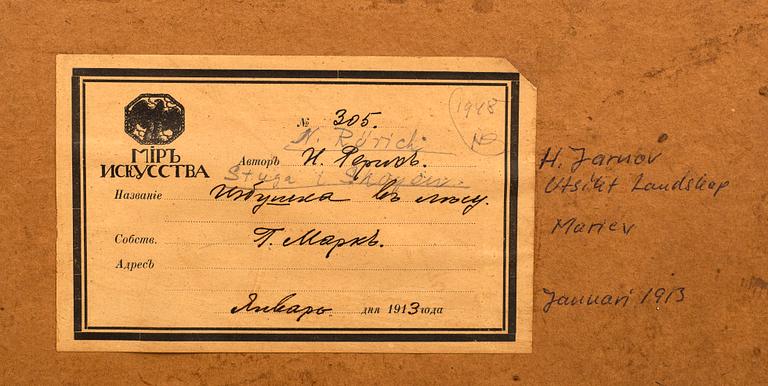 МІРЪ
ИСКУССТВА
№ 305.
1948
N. Rörich
Авторъ Н. Рерихъ.
Stuga i Skogen.
Названіе Избушка въ лѣсу.
Собств. Г. Маркъ.
Адресъ
Январь дня 1913 года
H. Jarnov
Utsikt Landskap
Mariev
Januari 1913